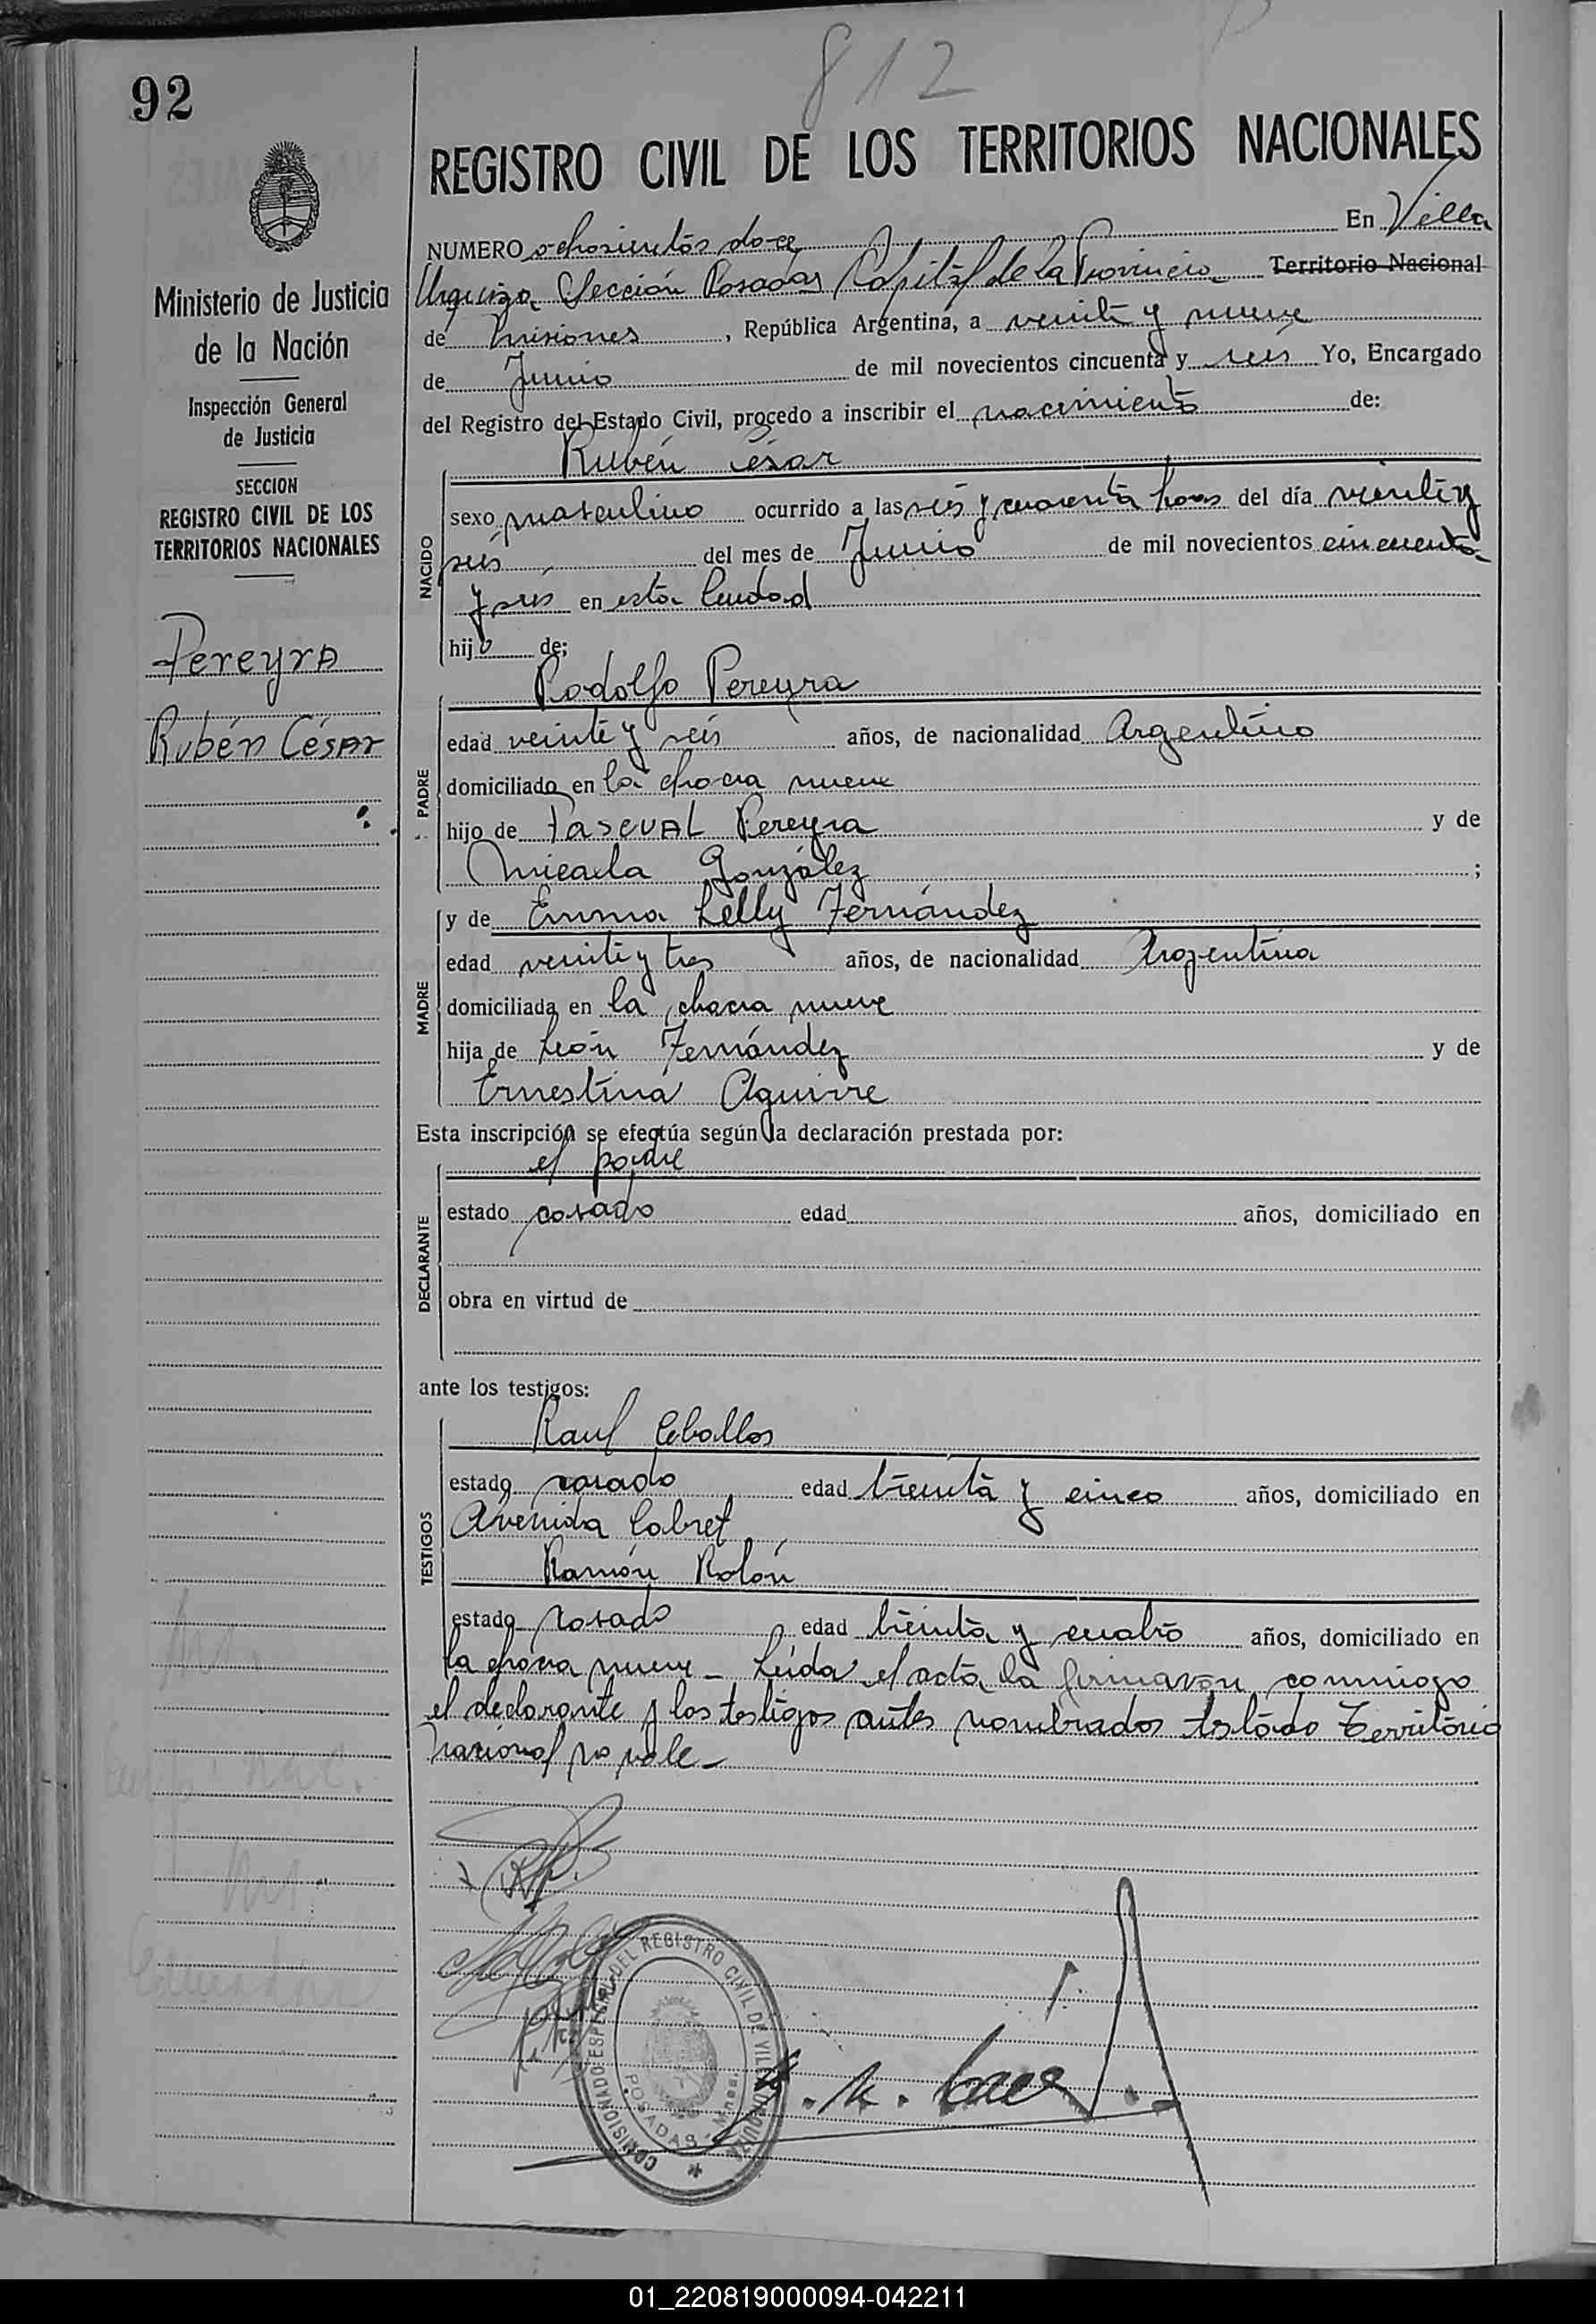 812
92
REGISTRO CIVIL DE LOS TERRITORIOS NACIONALES
NUMERO ochosientos doce En Villa
Urquiza Sección Posadas Capital de la Provincia Territorio Nacional
de Misiones, República Argentina, a veinte y nueve
de Junio de mil novecientos cincuenta y seis Yo, Encargado
del Registro del Estado Civil, procedo a inscribir el nacimiento de:
Ministerio de Justicia
de la Nación
Inspección General
de Justicia
SECCION
REGISTRO CIVIL DE LOS
TERRITORIOS NACIONALES
Pereyra
Rubén César
NACIDO
Rubén César
sexo masculino ocurrido a las seis y cuarenta horas del día veinte y
seis del mes de Junio de mil novecientos cincuenta
y seis en esta Ciudad
hijo de;
PADRE
Rodolfo Pereyra
edad veinte y seis años, de nacionalidad Argentino
domiciliado en la chacra nueve
hijo de Pascual Pereyra y de
Micaela González;
MADRE
y de Emma Lelly Fernández
edad veinte y tres años, de nacionalidad Argentina
domiciliada en la chacra nueve
hija de León Fernández y de
Ernestina Aguirre
Esta inscripción se efectúa según la declaración prestada por:
DECLARANTE
el padre
estado casado edad años, domiciliado en
obra en virtud de
ante los testigos:
TESTIGOS
Raul Ceballos
estado casado edad treinta y cinco años, domiciliado en
Avenida Cabret
Ramón Rolón
estado casado edad treinta y cuatro años, domiciliado en
la chacra nueve - Leida el acta la firmaron conmigo
el declarante y los testigos antes nombrados testado Territorio
Nacional no vale -
COMISIONADO ESPECIAL DEL REGISTRO CIVIL DE VILLA URQUIZA
POSADAS - Mnes.
01_220819000094-042211